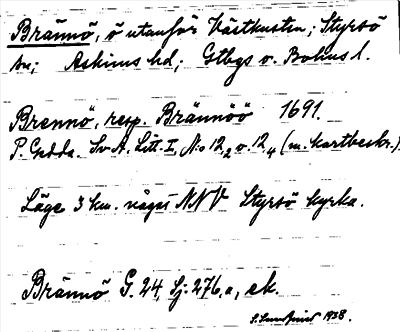 Brännö, ö utanför Västkusten; Styrsö
sn; Askims hd; Gtbgs o. Bohus l.
Brennö, resp. Brännöö 1691.
P. Gedda. Sv. A. Litt. I, N:o 12,2 o. 12,4 (m. kartbeskr.).
Läge 3 km. någs NNV Styrsö kyrka.
Brännö G. 24, Sj: 276,a, ek.
1938.